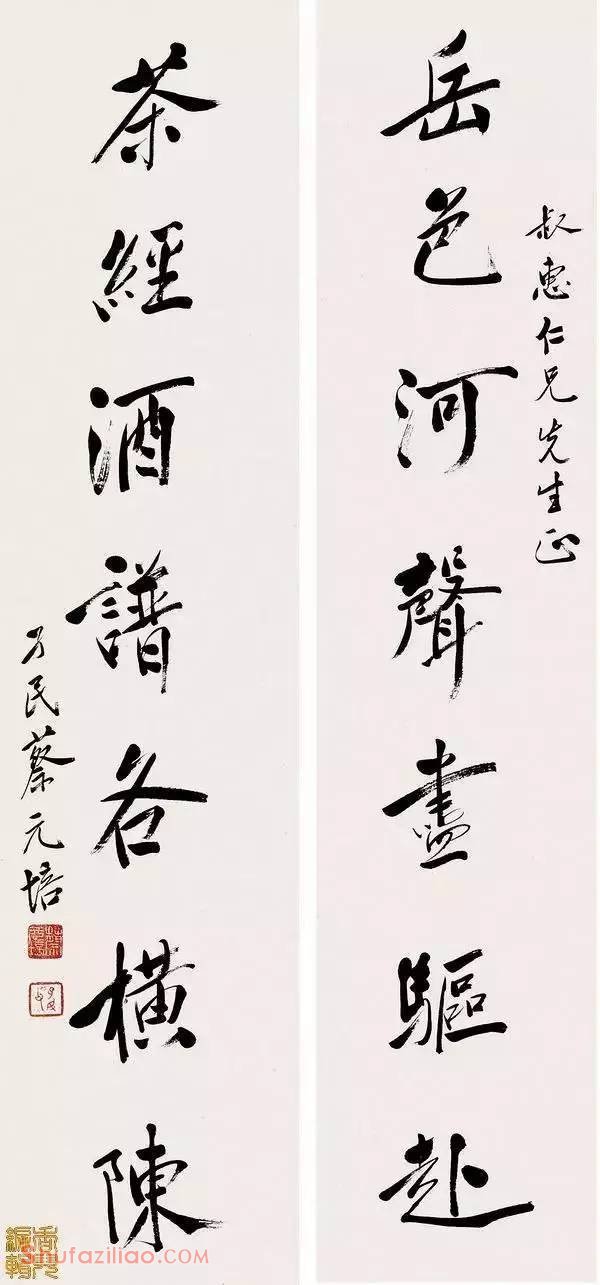 叔惠仁兄先生正
岳色河聲盡驅赴
茶經酒譜各橫陳
孑民蔡元培
Shufaziliao.com